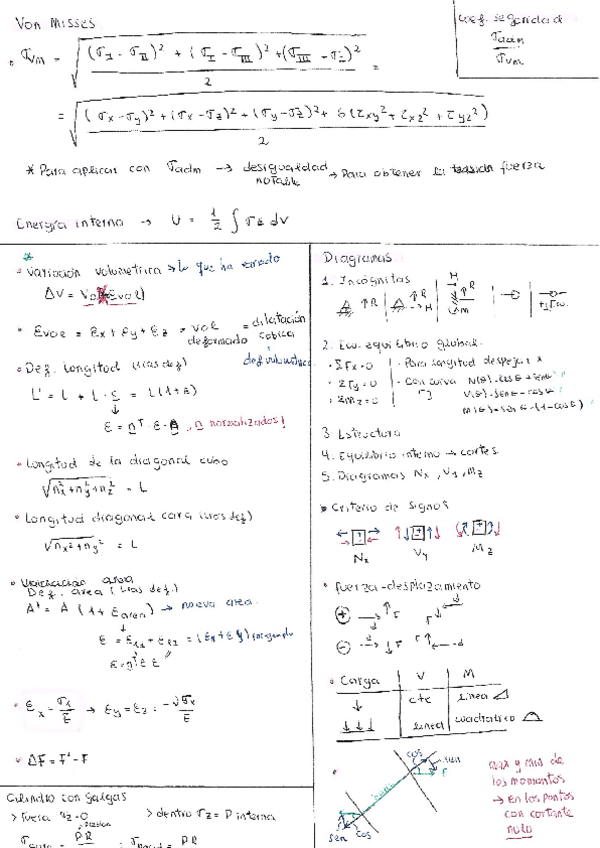 Von Misses
Coef. seguridad
σadm
σvm
σvm = √((σI - σII)² + (σI - σIII)² + (σIII - σI)²) / 2 =
= √((σx - σy)² + (σx - σz)² + (σy - σz)² + 6(τxy² + τxz² + τyz²)) / 2
* Para aplicar con σadm → desigualdad → Para obtener la fuerza
notable
Energía interna → U = 1/2 ∫ σε dV
*
• Variación volumétrica > lo que ha
ΔV = Vo · Evol
• Evol = εx + εy + εz → vol = dilatación
deformado cúbica
def volumétrica
• Def. longitud (tras def)
L' = L + L · ε = L(1+ε)
↓
ε = nᵀ · ε · n, n normalizados!
• Longitud de la diagonal cubo
√(nx² + ny² + nz²) = L
• Longitud diagonal cara (tras def)
√(nx² + ny²) = L
• Variación area
Def. area (tras def.)
A' = A (1 + εarea) → nueva area.
↓
• εx = σx/E → εy = εz = -νσx/E
• ΔF = F' - F
Cilindro con galgas
> fuera σz=0 > dentro σz = P interna
presión
PR PR
Diagramas
1. Incógnitas
↑R ↑R →H H ↑R M
2. Ec. equilibrio global.
• ΣFx=0 · Para longitud despejar x
• ΣFy=0 · Con curva N(θ)·cosθ+senθ
• ΣMz=0 V(θ)·senθ-cosθ
M(θ)=senθ-(1-cosθ)
3. Estructura
4. Equilibrio interno → cortes
5. Diagramas Nx, Vy, Mz
• Criterio de signos
Nx Vy Mz
• Fuerza-desplazamiento
+ → d ↑F F↑ ← d
- → d ↓F F↑ ← d
• Carga V M
↓ cte linea
↓↓↓ lineal cuadratico
cos sen
F
sen cos
max y min de
los momentos
→ En los puntos
con cortante
nulo